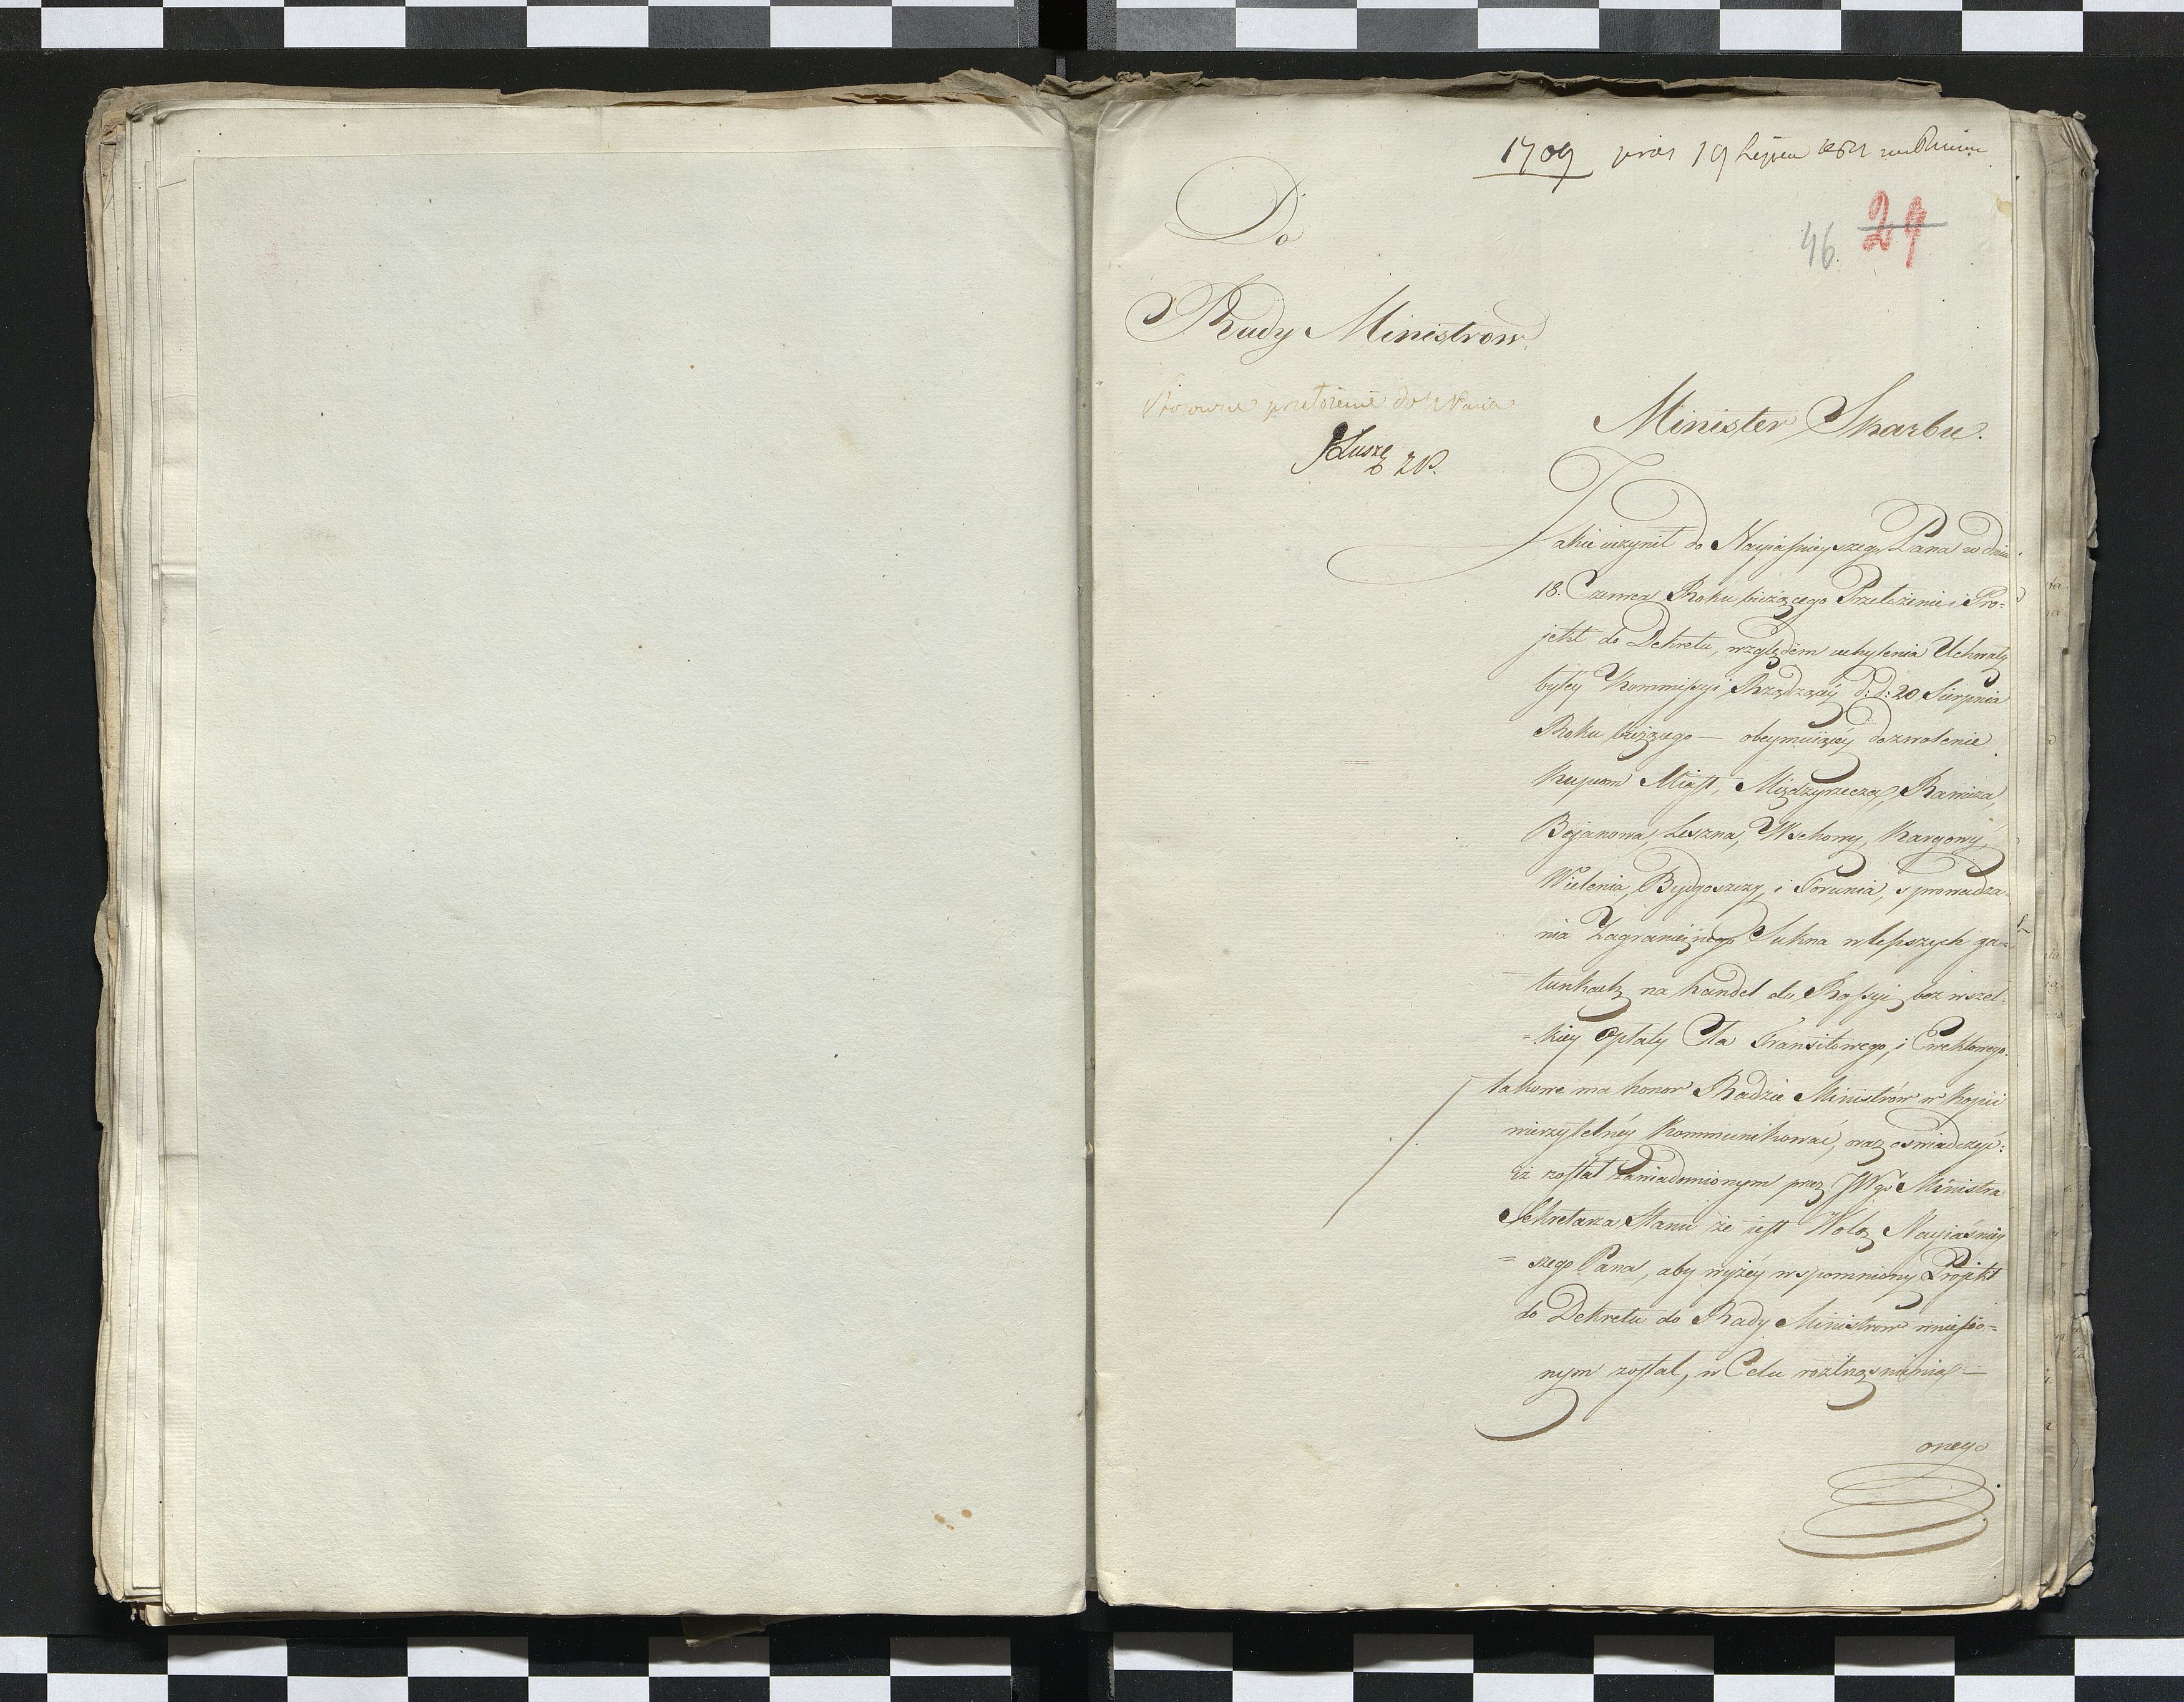 1709 19 Lipca
46. 29
Do
Rady Ministrow.
przełożenie
Minister Skarbu.
Jakie uczynił do Nayiaśnieyszego Pana w dniu
18. Czerwca Roku bieżącego Przełożenie i Pro=
jekt do Dekretu, względem uchylenia Uchwały
byłey Kommissyi Rządzącéy d: d: 20 Sierpnia
Roku bieżącego — obeymuiącéy dozwolenie
Kupcom Miast, Międzyrzecza, Rawicza,
Bojanowa, Leszna, Wschowy, Kargowy,
Wielenia, Bydgoszczy, i Torunia, sprowadza=
nia Zagranicznego Sukna w lepszych ga=
tunkach na handel do Rossyi bez wszel=
=kiey Opłaty Cła Transitowego, i Ewektowego.
takowe ma honor Radzie Ministrów w Kopii
wierzytelnéy Kommunikować, oraz oświadczyć:
iż został zawiadomionym przez JWgo Ministra
Sekretarza Stanu że iest Wolą Nayiaśniey
= szego Pana, aby wyżéy wspomniony Projekt
do Dekretu do Rady Ministrow wniesio=
nym został, w Celu roztrząśnienia —
onego